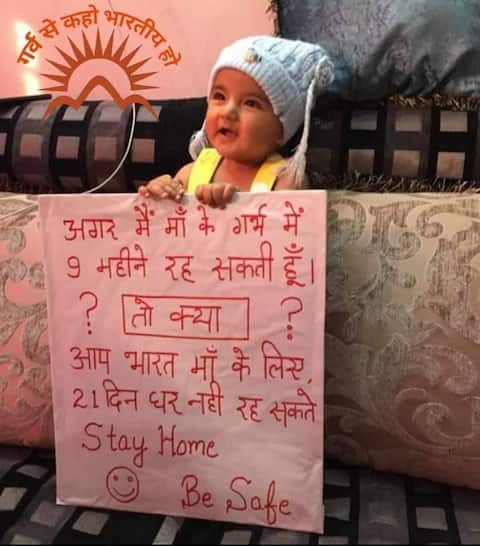 गर्व से कहो भारतीय हो
अगर मैं माँ के गर्भ में
9 महीने रह सकती हूँ।
? तो क्या ?
आप भारत माँ के लिए,
21 दिन घर नही रह सकते
Stay Home
Be Safe